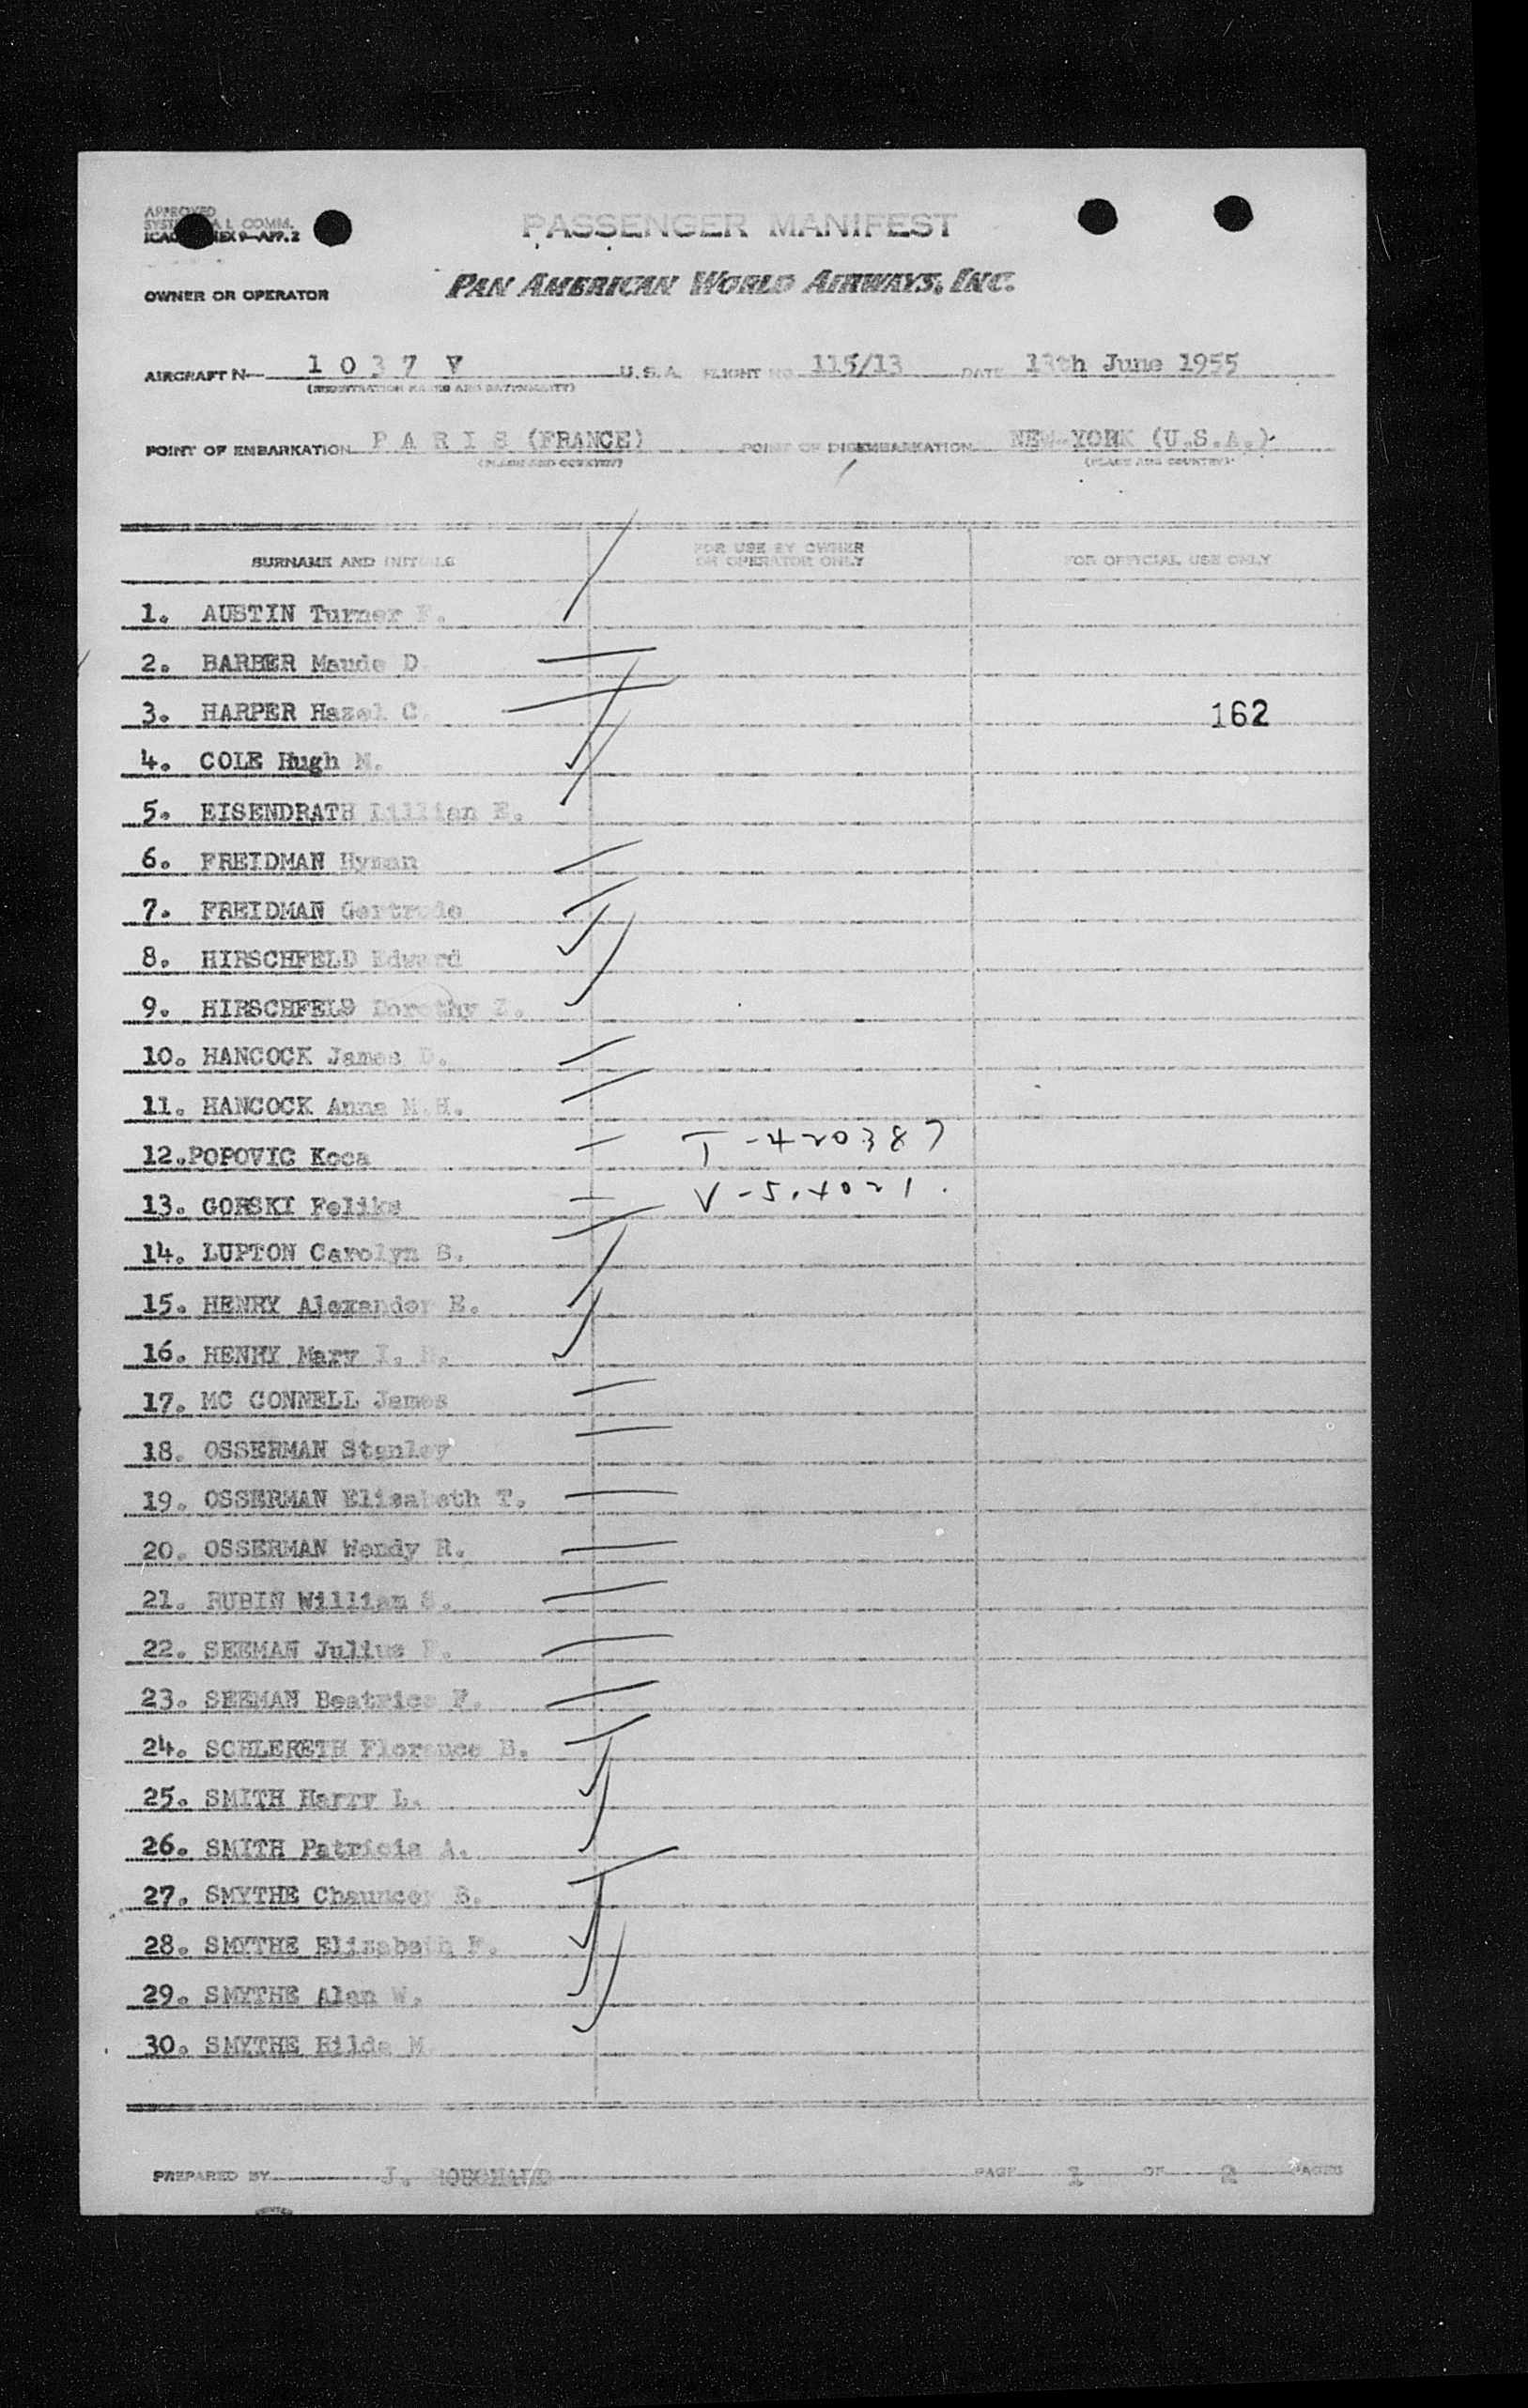 APPROVED
ICAO ANNEX 9—APP. 2
PASSENGER MANIFEST
OWNER OR OPERATOR PAN AMERICAN WORLD AIRWAYS, INC.
AIRCRAFT N— 1 0 3 7 V U.S.A. FLIGHT NO. 115/13 DATE 13th June 1955
(REGISTRATION MARKS AND NATIONALITY)
POINT OF EMBARKATION P A R I S (FRANCE) POINT OF DISEMBARKATION NEW-YORK (U.S.A.)
(PLACE AND COUNTRY) (PLACE AND COUNTRY)
SURNAME AND INITIALS FOR USE BY OWNER OR OPERATOR ONLY FOR OFFICIAL USE ONLY
1. AUSTIN Turner
2. BARBER Maude D.
3. HARPER Hazel C. 162
4. COLE Hugh M.
5. EISENDRATH Lillian E.
6. FREIDMAN Hyman
7. FREIDMAN Gertrude
8. HIRSCHFELD Edward
9. HIRSCHFELD Dorothy Z.
10. HANCOCK James D.
11. HANCOCK Anna M.H.
12. POPOVIC Koca T-420387
13. GORSKI Feliks V-
14. LUPTON Carolyn S.
15. HENRY Alexander E.
16. HENRY Mary I.
17. MC CONNELL James
18. OSSERMAN Stanley
19. OSSERMAN Elisabeth T.
20. OSSERMAN Wendy R.
21. RUBIN William S.
22. SEEMAN Julius
23. SEEMAN Beatrice F.
24. SCHLERETH Florence B.
25. SMITH Harry L.
26. SMITH Patricia A.
27. SMYTHE Chauncey S.
28. SMYTHE Elisabeth F.
29. SMYTHE Alan W.
30. SMYTHE Hilda M.
PREPARED BY J. PAGE 1 OF 2 PAGES